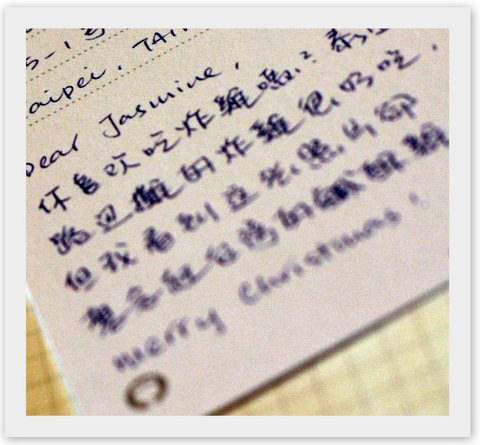 5-1号
aipei, TAI
Dear Jasmine,
你喜歡吃炸雞嗎? 泰國
路邊攤的炸雞很好吃,
但我看到立
台灣的鹹酥雞
Merry Christmas!